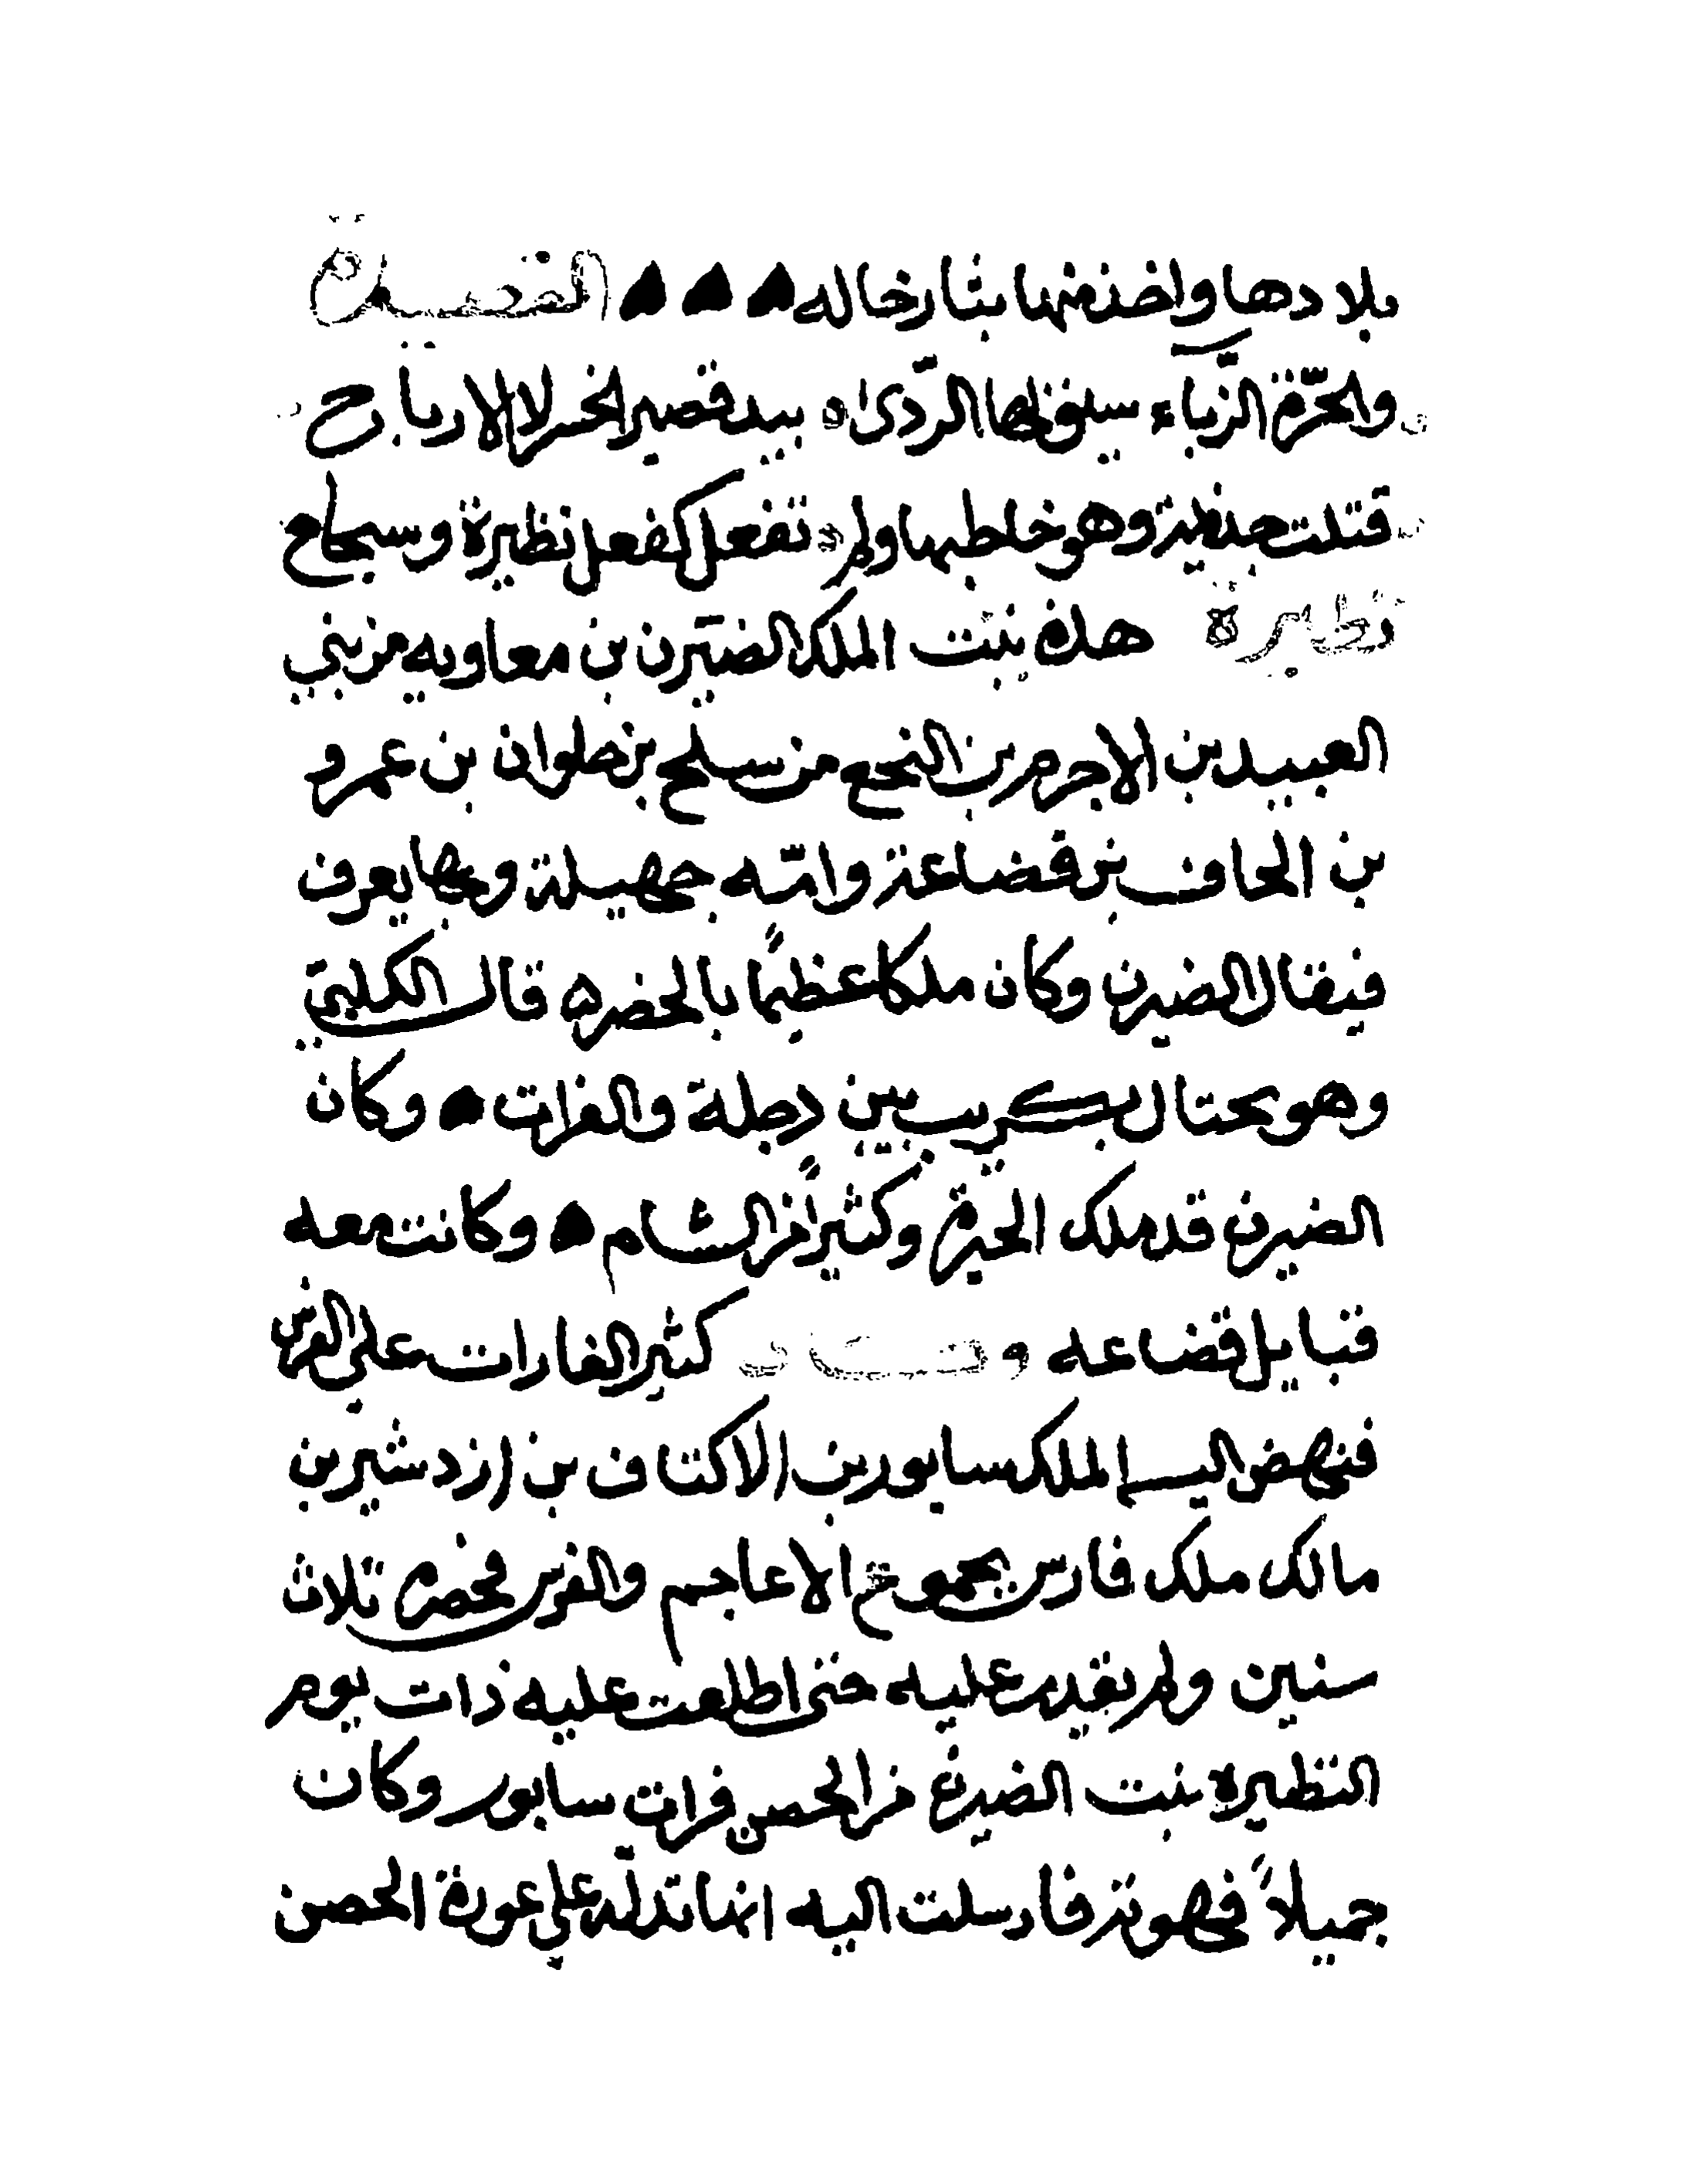 بلادها واخذ منها بثار خاله القصيدة
والحرّة الزّباء سيق لها الرّدى بيد قصير الخسر لا الارباح
قتلت جذيمة وهو خاطبها ولم تفعل كفعل نظيرة وسجاح
نظيرة هذه بنت الملك الضيزن بن معاويه من بني
العبيد بن الاجرم بن النخع من سلح بن حلوان بن عمرو
بن الحاف بن قضاعة وامّه جهيلة وبها يعرف
فيقال الضيزن وكان ملكا عظيمًا بالحضره قال الكلبي
وهو بحتال بين دجلة والفرات وكان
الضيزن قد ملك الحيرة وكثيرًا من الشام وكانت معه
قبايل قضاعه و كثير الغارات على الفرس
فنهض اليه الملك سابور بن الاكتاف بن ازدشير بن
مالك ملك فارس بجموع الاعاجم والفرس فحصره ثلاث
سنين ولم يقدم عليه حتى اطلعت عليه ذات يوم
النظيرة بنت الضيزن من الحصن فرات سابور وكان
جميلاً فهوته فارسلت اليه انها تدلّه على عورة الحصن